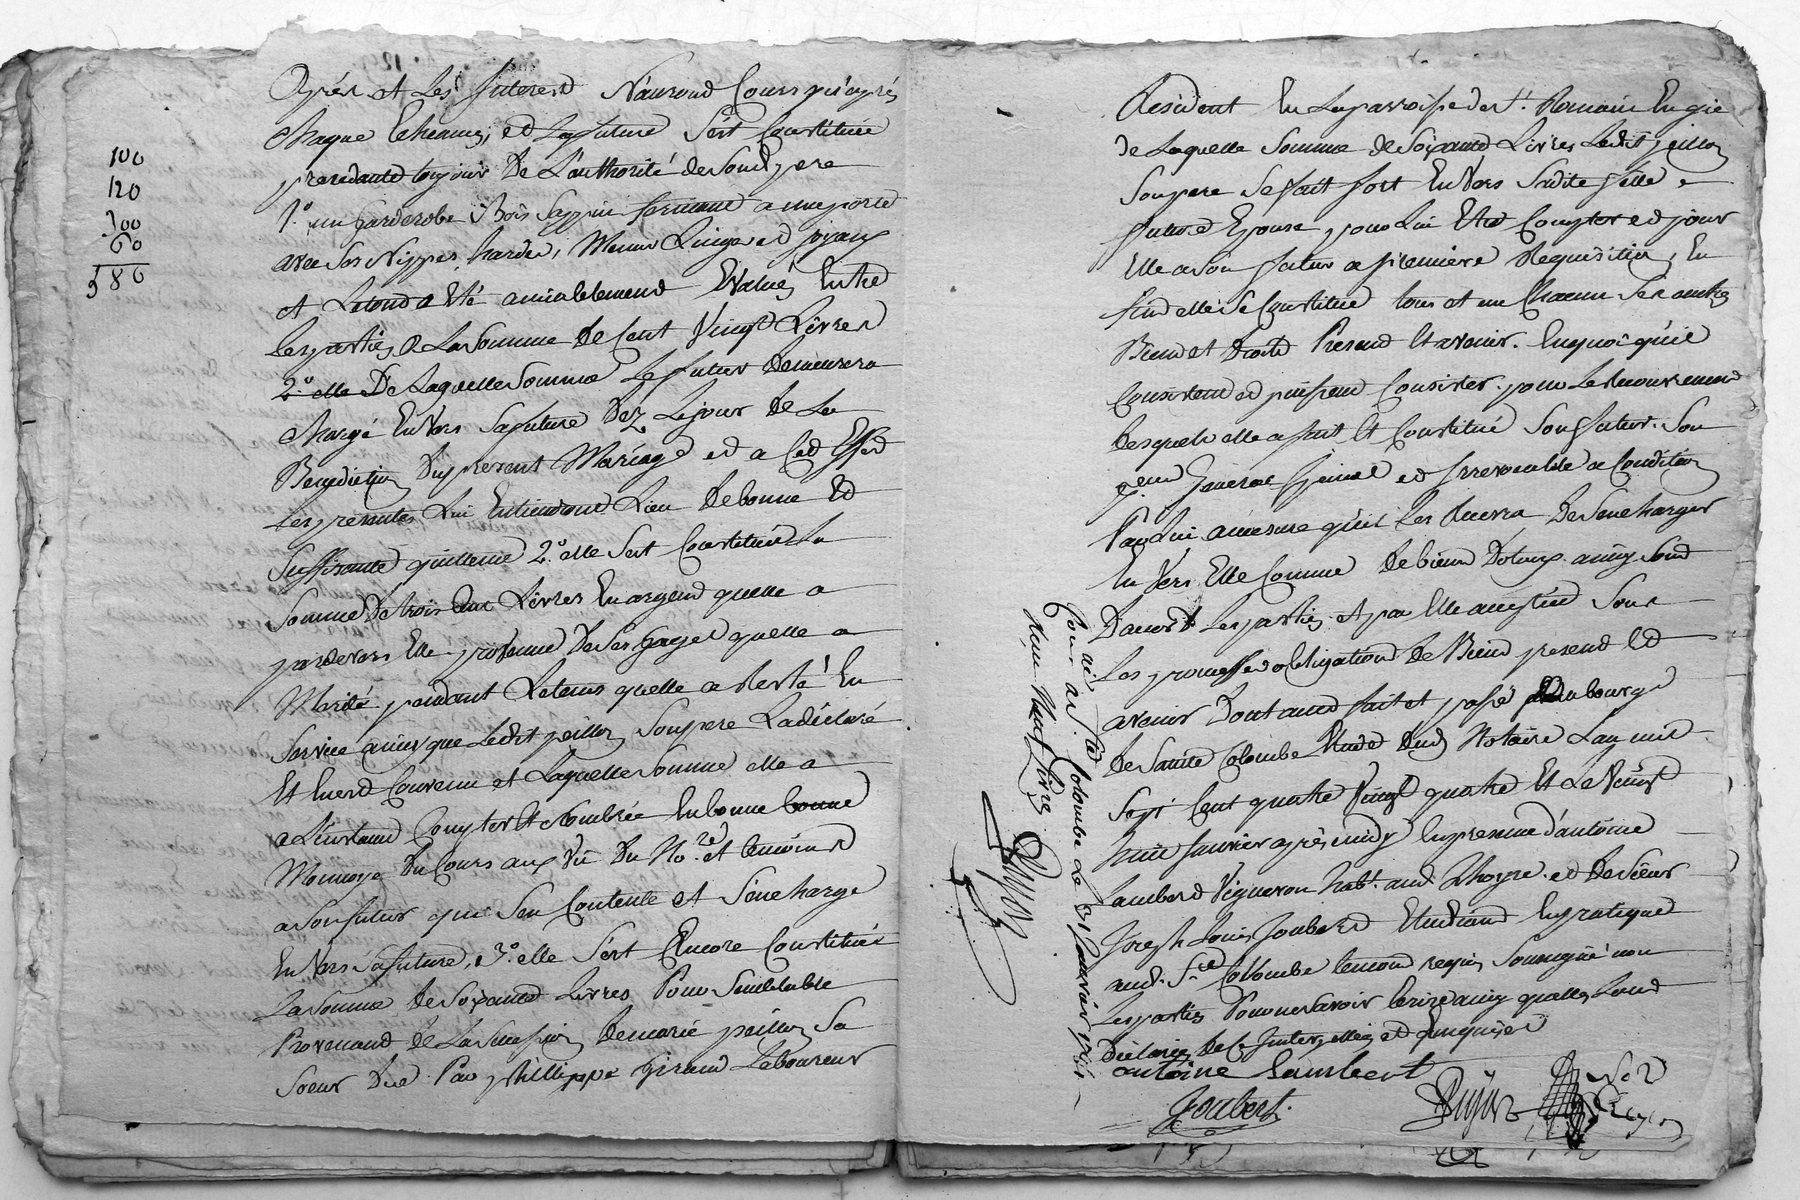 100
120
300
60
580
après et les Interest N'auront Cours qu'après
chaque Echeance, et La future s'est Constituée
procedante toujour De L'authorité de Son d. pere
1° un garderobe Bois Sappin fermant a une porte
avec Ses Nippes, hardes, Menus Linge et joyaux
et Letout a Eté amiablement Evalué Entre
Les parties a La Somme De Cent Vingt Livres
2° elle De Laquelle Somme Le futur Demeurera
Chargé Envers Sa future Dez Le jour De La
Benediction Du present Mariage et a Cet Effet
Les presentes Lui Entiendront Lieu De bonne Et
Suffisante quittance 2° elle S'est Constituée La
Somme De trois Cent Livres En argent quelle a
pardevers Elle provenue De Ses gages quelle a
Merité pendant Le tems quelle a Resté En
Service ainsy que Ledit peillon Son pere L'a déclaré
Et En est Convenu et Laquelle Somme elle a
a L'instant Compter Et Nombrée En bonne bonne
Monnoye Du Cours aux Vû Du No.re et temoins
a Son futur qui S'en Contente et S'en Charge
Envers Sa future, 3° elle S'est Encore Constituée
La Somme de Soixante Livres Pour Semblable
Provenant De La Succession De marie peillon Sa
Soeur Due Par phillippe giraud Laboureur
Resident En La parroisse de St. Romain En gie
de Laquelle Somme de Soixante Livres Ledit peillon
Son pere Se fait fort Envers Sadite fille
future Epouse, pour Lui Etre Compter et pour
Elle a Son futur a premiere Requisition, En
fin elle Se Constitue tous et un Chacun Ses autres
Biens et Droits Present Et avenir. En quoi qu'il
Consistent et puissent Consister. pour Le Recouvrement
Desquels elle a fait Et Constitué Son futur. Son
p.eur General Special et Irrevocable a Condition
Par Lui a mesure qu'il Les Recevra De S'en Charger
En Vers Elle Comme De biens Dotaux ainsy Sont
D'accord Les parties et par Elle ainsy Sous
Les promesses obligation De Biens present Et
avenir Dont acte fait et passé au bourg
De Sainte Colombe Etude Dud. Notaire L'an mil
Sept Cent quatre Vingt quatre Et Le Vingt
huit Janvier après midy En presence d'antoine
Lambert Vigneron hab.t aud. et De Sieur
Joseph Louis Joubert Etudiant En pratique
aud. Ste Colombe temoins requis Soussigné non
Les parties Pour ne Savoir Ecrire ainsy quelles L'ont
Declaré De Ce Interpellées et Enquises
antoine Lambert
Joubert.
Dujon
Con.lé a Ste Colombe Le 31 Janvier 1784
Reçu Neuf Livre
Dujon